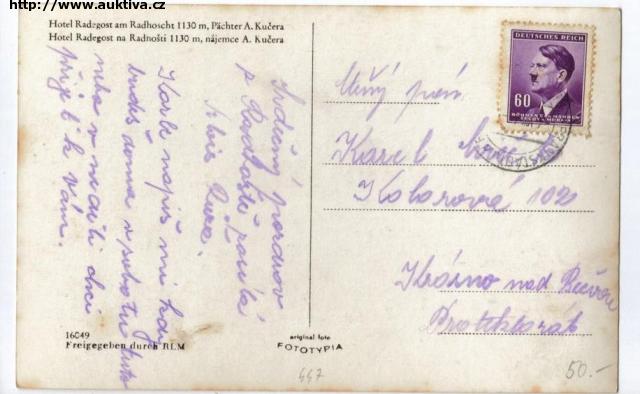 http://www.auktiva.cz
Hotel Radegost am Radhoscht 1130 m, Pächter A. Kučera
Hotel Radegost na Radhošti 1130 m, nájemce A. Kučera
Srdečný pozdrav
z Radhoště
Karle napiš mi
budeš doma v sobotu
nebo v neděli chci
přijeti k vám.
16049
Freigegeben durch RLM
original foto
FOTOTYPIA
447
DEUTSCHES REICH
60
BÖHMEN UND MÄHREN
ČECHY A MORAVA
pán
Karel
102
Krásno nad Bečvou
Protektorát
50.-